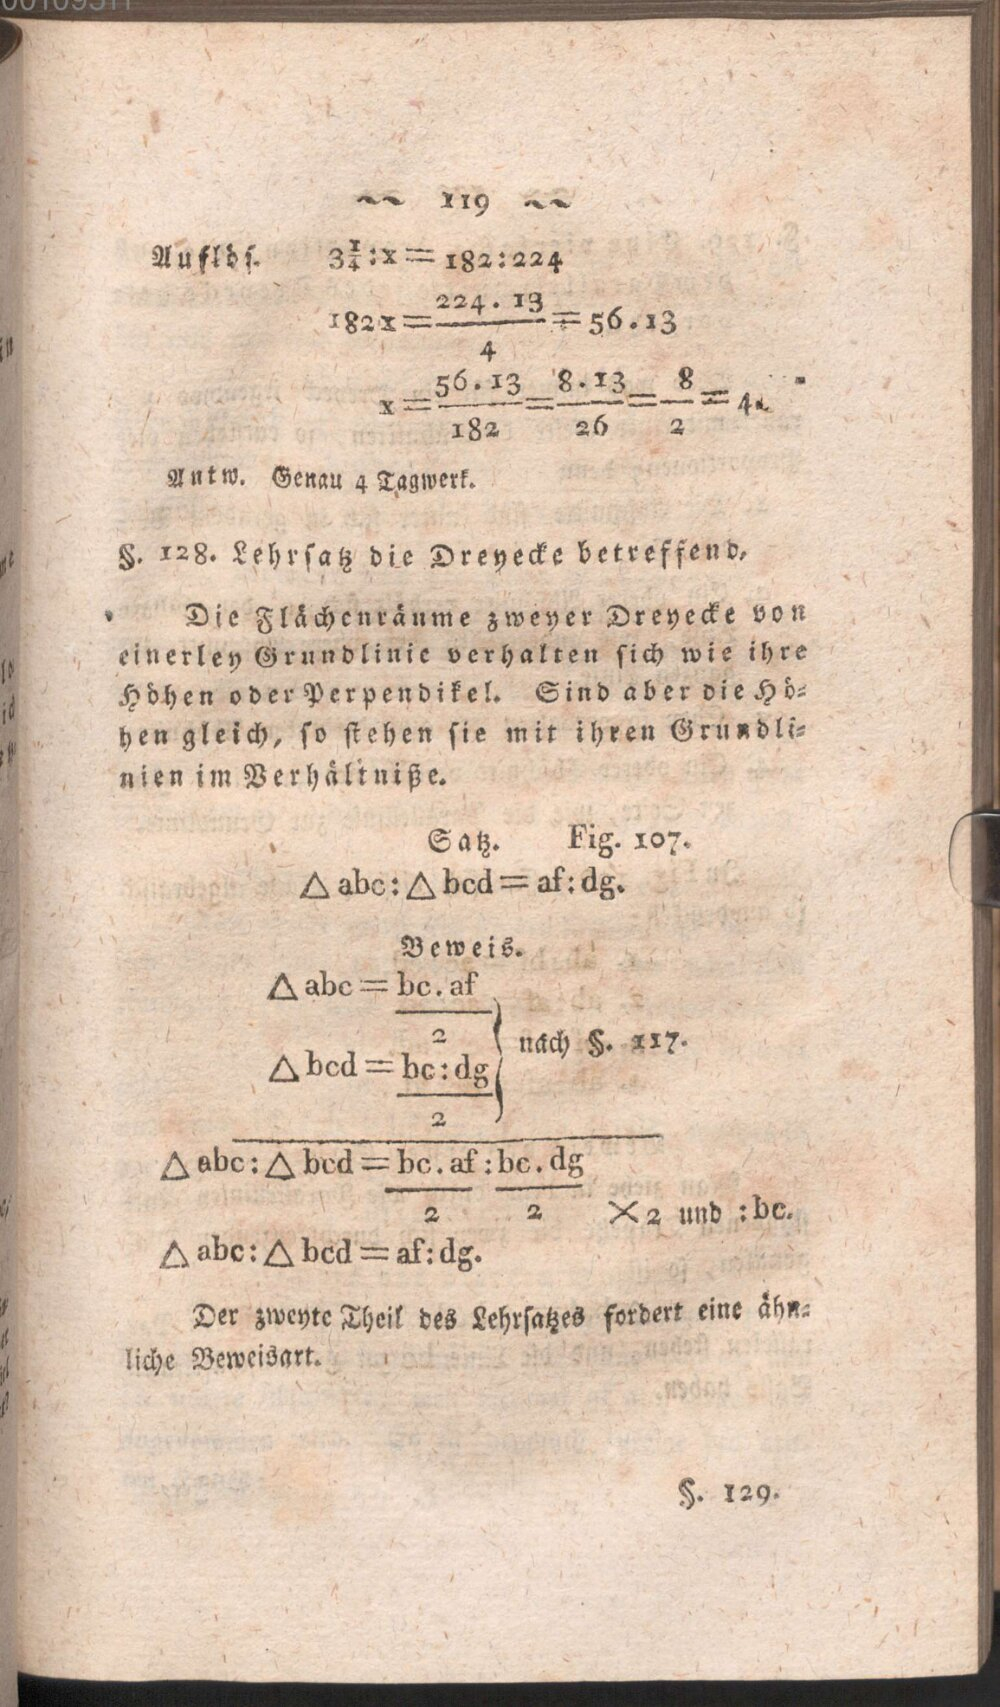 ~~ 119 ~~
Auflös. 3¼:x = 182:224
182x = 224 . 13/4 = 56 . 13
x = 56 . 13/182 = 8 . 13/26 = 8/2 = 4.
Antw. Genau 4 Tagwerk.
§. 128. Lehrsatz die Dreyecke betreffend.
Die Flächenräume zweyer Dreyecke von
einerley Grundlinie verhalten sich wie ihre
Höhen oder Perpendikel. Sind aber die Hö=
hen gleich, so stehen sie mit ihren Grundli=
nien im Verhältniße.
Satz. Fig. 107.
△ abc : △ bcd = af : dg.
Beweis.
△ abc = bc . af/2
nach §. 117.
△ bcd = bc : dg/2
△ abc : △ bcd = bc . af/2 : bc . dg/2
×2 und : bc.
△ abc : △ bcd = af : dg.
Der zweyte Theil des Lehrsatzes fordert eine ähn=
liche Beweisart.
§. 129.